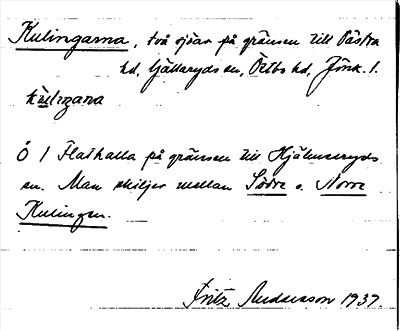 Kulingarna, två sjöar på gränsen till Västra
hd, Gällaryds sn, Östbo hd, Jönk. l.
kùliŋana
Ö l Flathalla på gränsen till Hjälmseryds
sn. Man skiljer mellan Södre o. Norre
Kulingen.
Fritz Andersson 1937.